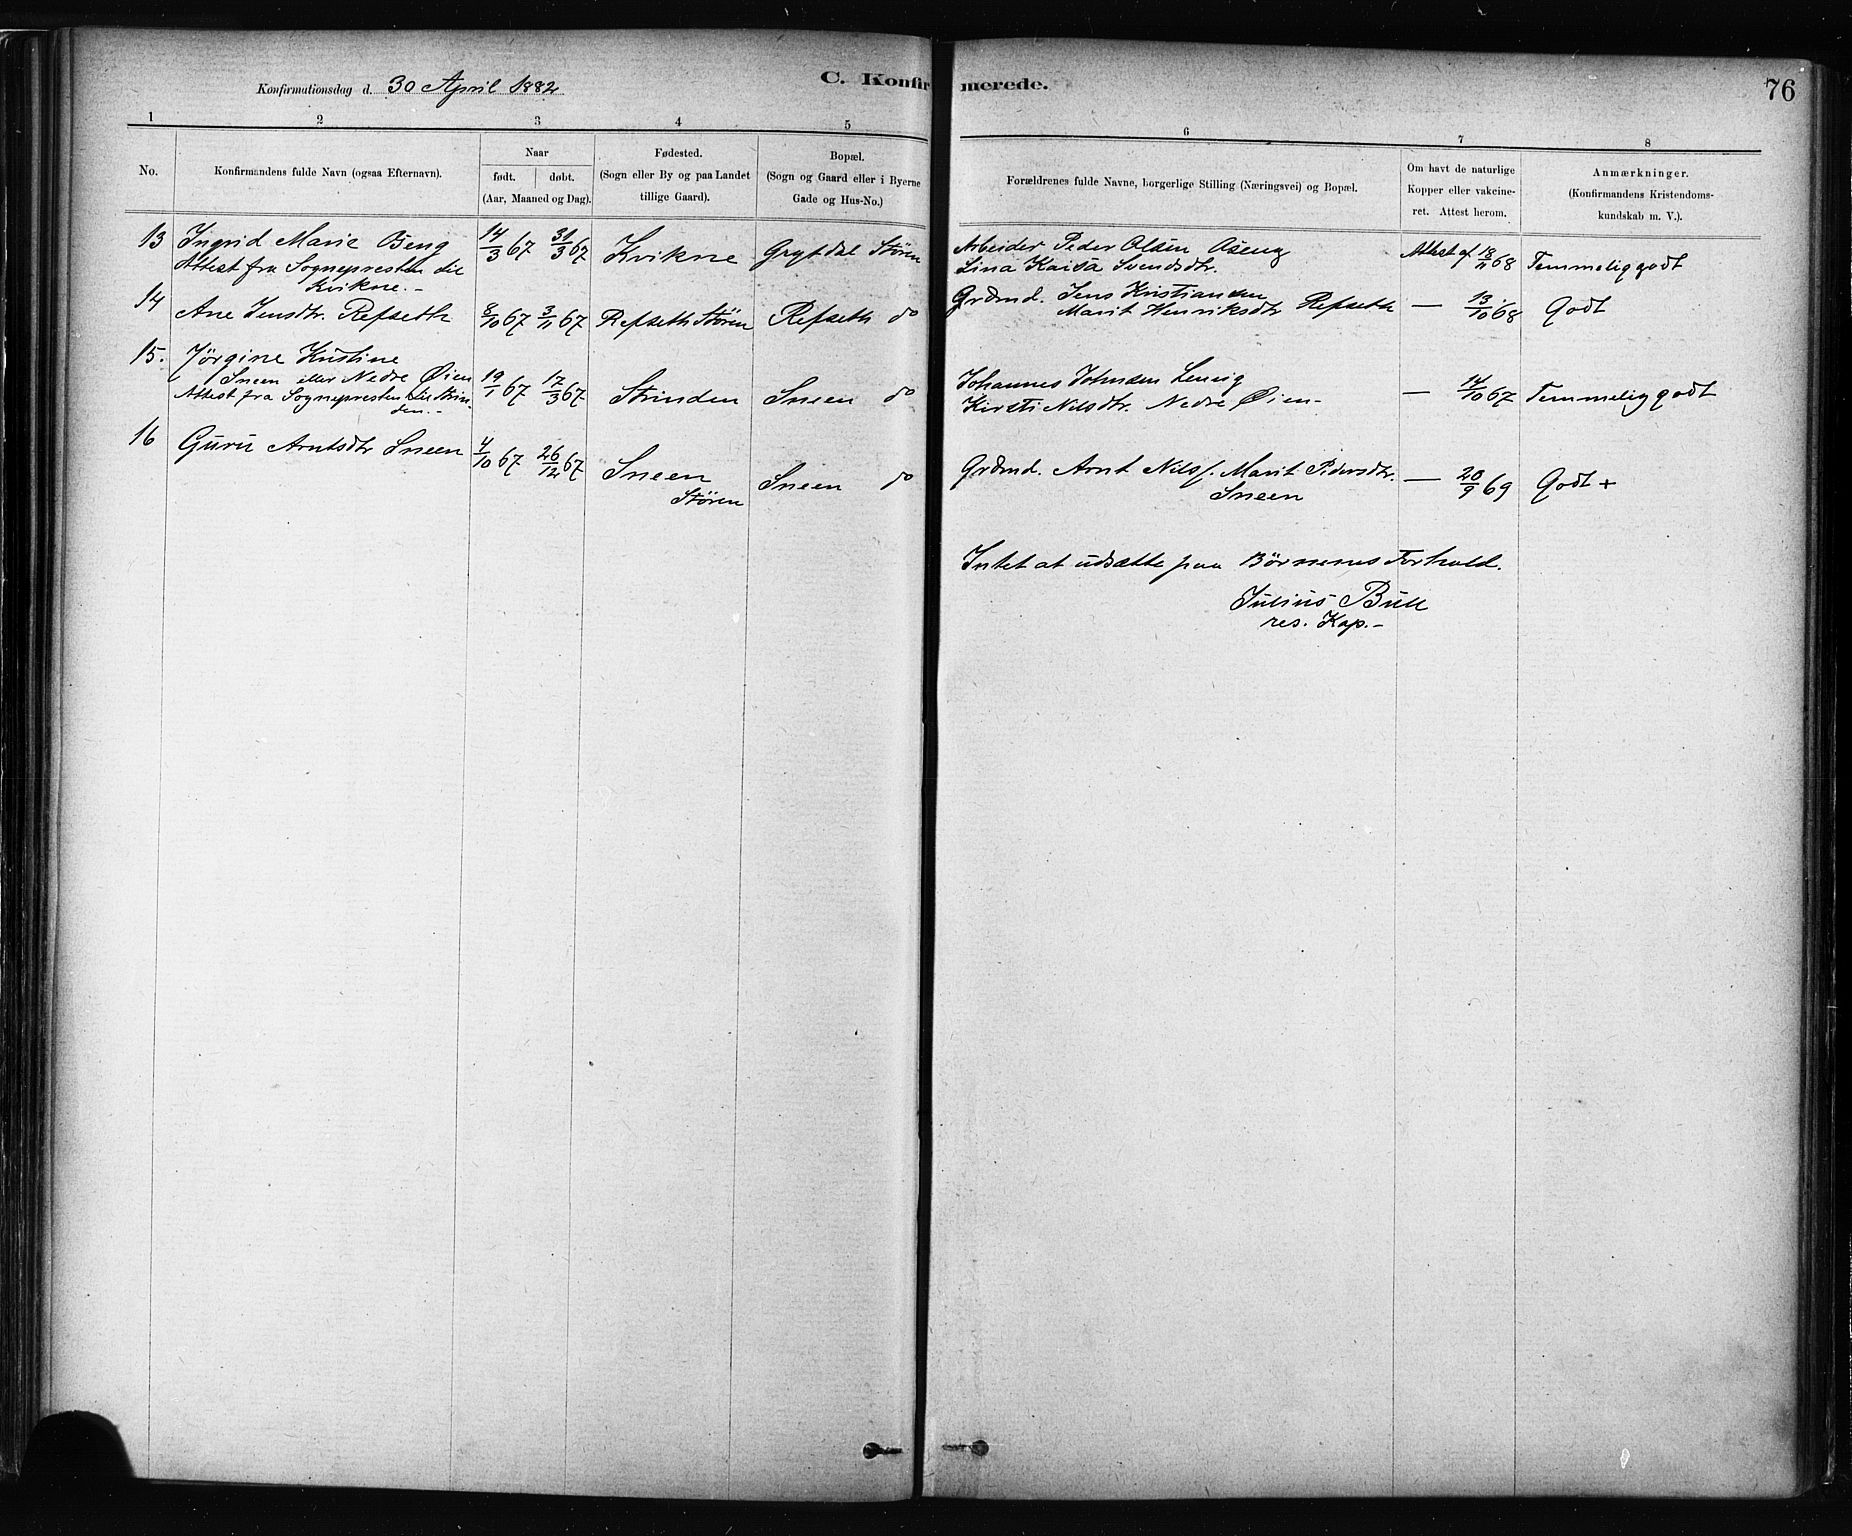 C. Konfirmerede.
76
Konfirmationsdag d. 30 April 1882
1 2 3 4 5 6 7 8
No.
Konfirmandens fulde Navn (ogsaa Efternavn).
Naar
født. døbt.
(Aar, Maaned og Dag).
Fødested.
(Sogn eller By og paa Landet
tillige Gaard).
Bopæl.
(Sogn og Gaard eller i Byerne
Gade og Hus-No.)
Forældrenes fulde Navne, borgerlige Stilling (Næringsvei) og Bopæl.
Om havt de naturlige
Kopper eller vakcine-
ret. Attest herom.
Anmærkninger.
(Konfirmandens Kristendoms-
kundskab m. V.).
13 Ingrid Marie Øseng 14/3 67 31/3 67 Kvikne Grytdal Støren Arbeider Peder Olsen Øseng Attest af 18/11 68 Temmelig godt
Attest fra Sognepresten til Lina Kaisa Svendsdtr.
Kvikne.-
14 Ane Jensdtr. Refseth 8/10 67 3/11 67 Refseth Støren Refseth do Grdmd. Jens Kristiansen — 13/10 68 Godt
Marit Henriksdtr Refseth
15. Jørgine Kristine
Sneen eller Nedre Øien 19/1 67 17/3 67 Strinden Sneen do Johannes Johnsen — 14/10 67 Temmelig godt
Attest fra Sognepresten til Strin- Kirsti Nilsdtr. Nedre Øien-
den.-
16 Guru Arntsdtr Sneen 4/10 67 26/12 67 Sneen Sneen do Grdmd. Arnt Nils f. Marit Pedersdtr. — 20/9 69 Godt +
Støren Sneen
Intet at udsætte paa Børnenes Forhold.
Julius Bull
res. Kap.-